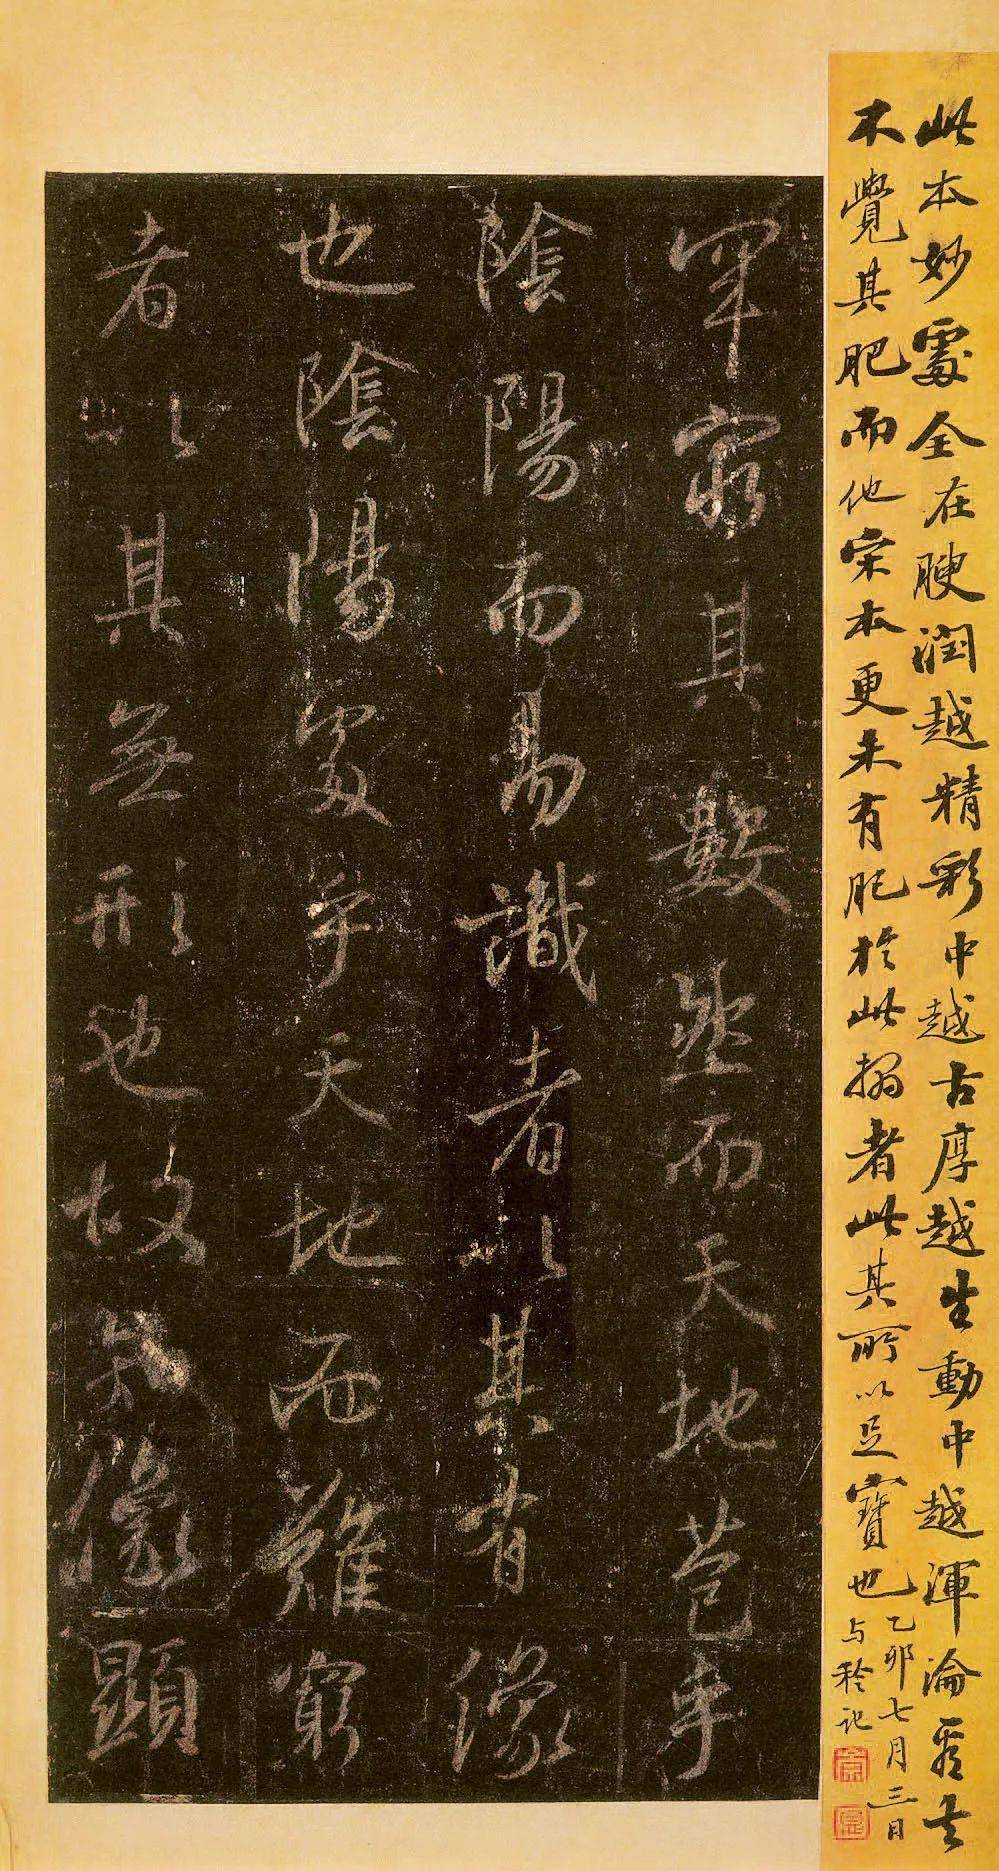 此本妙處全在腴潤越精彩中越古厚越生動中越渾淪看去
不覺其肥而他宋本更未有肥於此搨者此其所以足寶也
乙卯七月三日
与稔記
罕窮其數然而天地苞乎
陰陽而易識者以其有像
也陰陽處乎天地而難窮
者以其無形也故知像顯